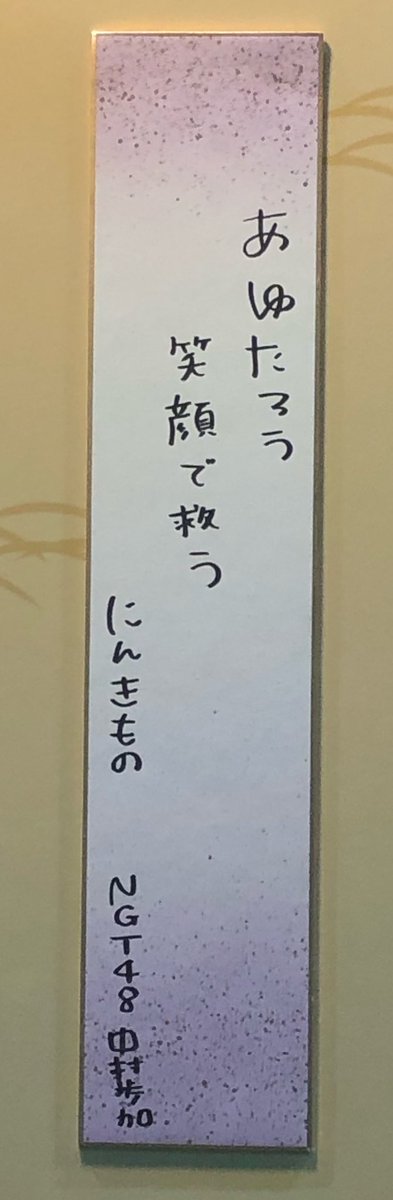 あゆたろう
笑顔で救う
にんきもの
NGT48 中村歩加